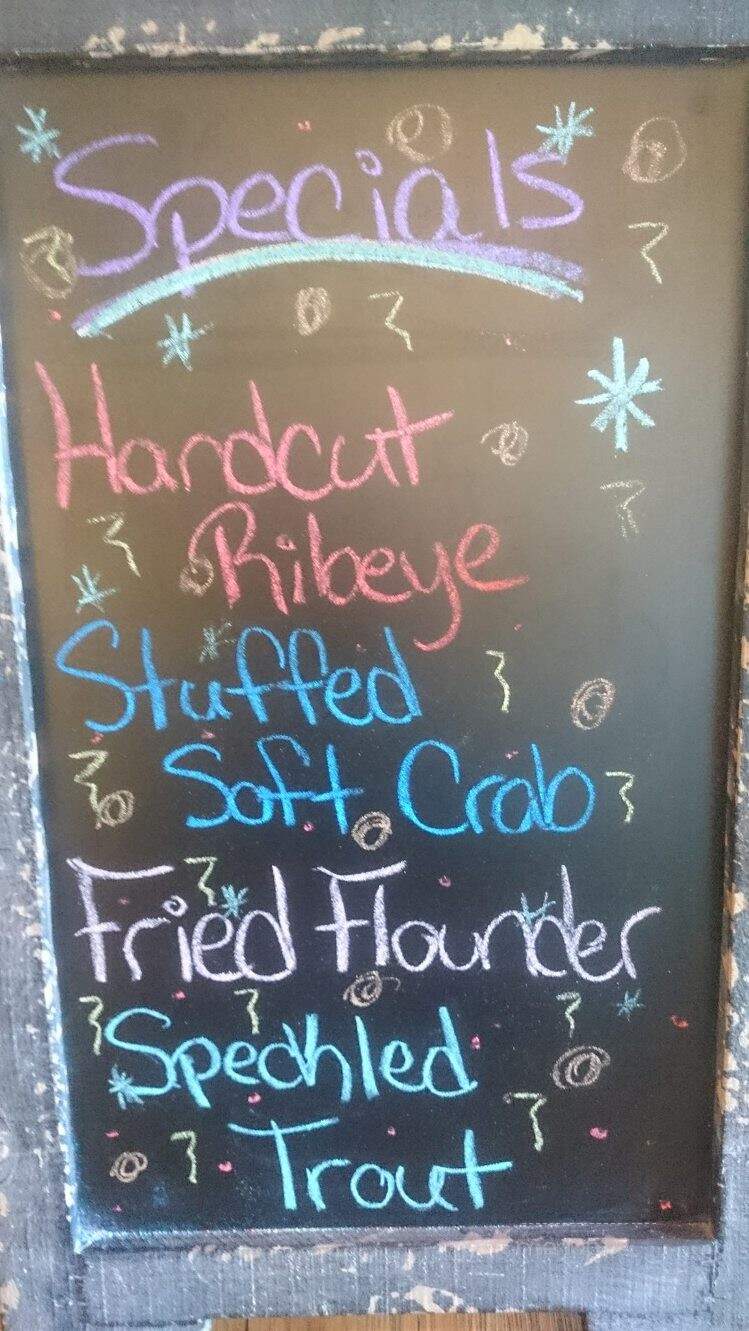 Specials
Handcut
Ribeye
Stuffed
Soft Crab
Fried Flounder
Speckled
Trout